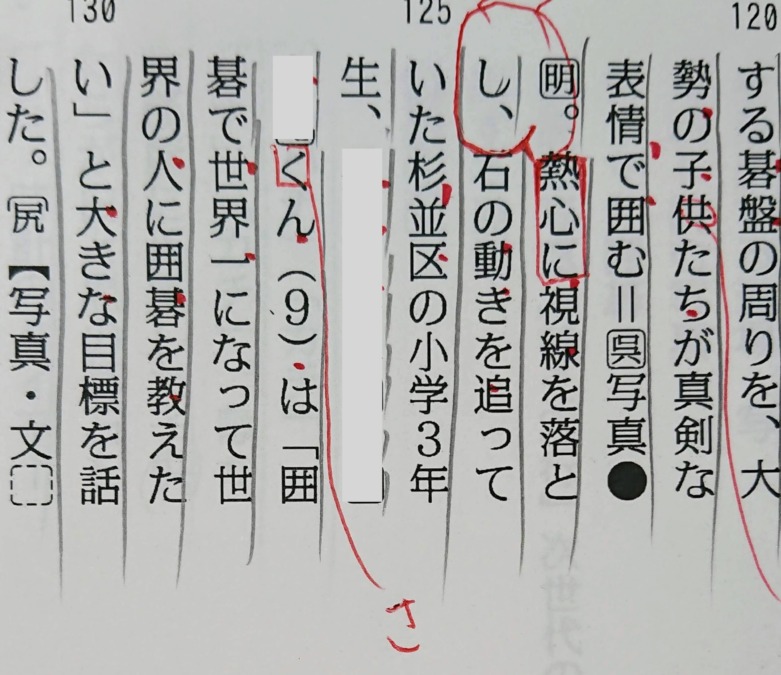 120
する碁盤の周りを、大
勢の子供たちが真剣な
表情で囲む＝呉写真●
明。熱心に視線を落と
し、石の動きを追って
125
いた杉並区の小学３年
生、
くん（９）は「囲
碁で世界一になって世
界の人に囲碁を教えた
130
い」と大きな目標を話
した。尻【写真・文
さ